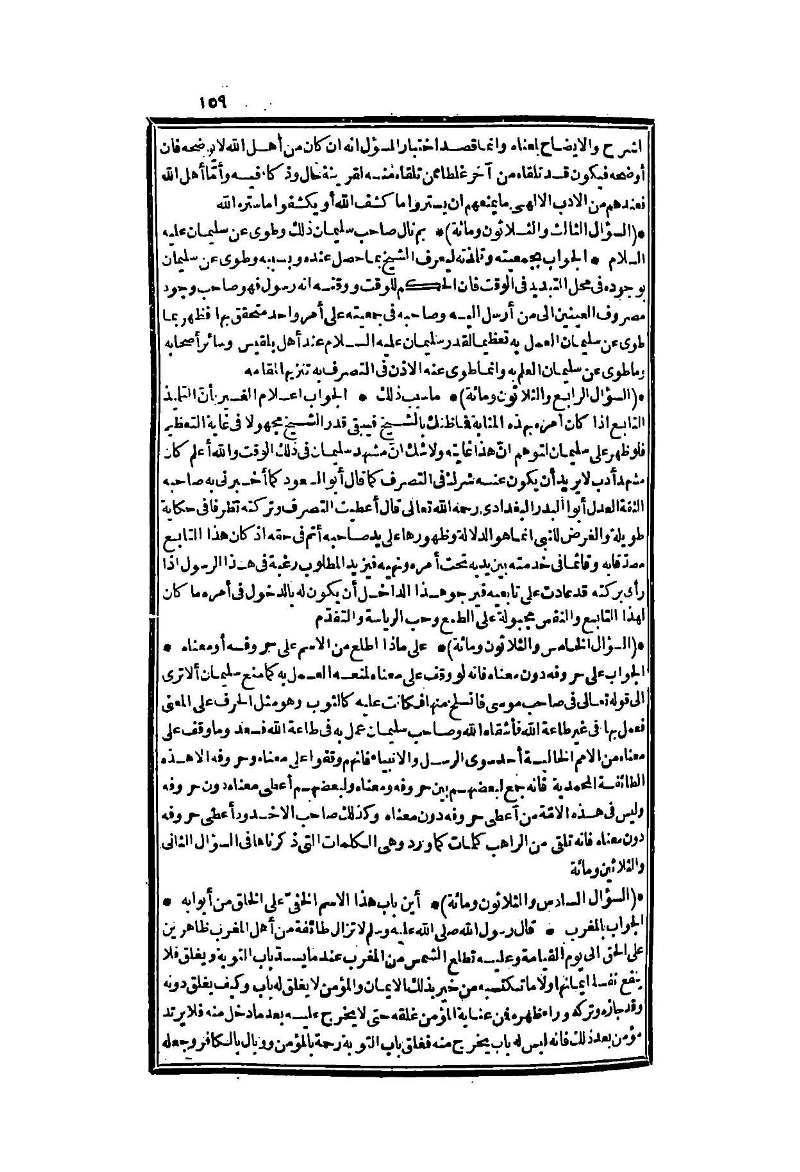 ١٥٩
الشرح والايضاح لمعناه وانما قصد اختبار المسؤل انه ان كان من أهل الله لا يوضحه فان
أوضحه فيكون قد تلقاه من آخر غلطا ممن تلقاه منه لقرينة حال وذكا فيه وأما أهل الله
فعندهم من الادب الالهى ما يمنعهم ان يستروا ما كشف الله أو يكشفوا ما ستره الله
*(السؤال الثالث والثلاثون ومائة)* بم نال صاحب سليمان ذلك وطوى عن سليمان عليه
السلام * الجواب بجمعيته وتلمذته ليعرف الشيخ بما حصل عنده وبسببه وطوى عن سليمان
بوجوده فى محل التبديد فى الوقت فان الحكم للوقت ووقته انه رسول فهو صاحب وجود
مصروف العينين الى من أرسل اليه وصاحبه فى جمعيته على أمر واحد متحقق بها فظهر بما
طوى عن سليمان العمل به تعظيما لقدر سليمان عليه السلام عند أهل بلقيس وسائر أصحابه
وما طوى عن سليمان العلم به وانما طوى عنه الاذن فى التصرف به تنزيها لمقامه
*(السؤال الرابع والثلاثون ومائة)* ما سبب ذلك * الجواب اعلام الغير بأن التلميذ
التابع اذا كان أمره بهذه المثابة فما ظنك بالشيخ فيبقى قدر الشيخ مجهولا فى غاية التعظيم
فلو ظهر على سليمان لتوهم ان هذا غايته ولا شك ان مشهد سليمان فى ذلك الوقت والله أعلم كان
مشهد أدب لا يريد أن يكون عنه شركة فى التصرف كما قال أبو السعود كما أخبرنى به صاحبه
الثقة العدل أبو البدر البغدادى رحمه الله تعالى قال أعطيت التصرف وتركته تظرفا فى حكاية
طويلة والغرض للنبى انما هو الدلالة وظهورها على يد صاحبه أتم فى حقه اذ كان هذا التابع
مصدقا به وقائما فى خدمته بين يديه تحت أمره ونهيه فيزيد المطلوب رغبة فى هذا الرسول اذا
رأى بركته قد عادت على تابعيه فيرجو هذا الداخل أن يكون له بالدخول فى أمره ما كان
لهذا التابع والنفس مجبولة على الطمع وحب الرياسة والتقدم
*(السؤال الخامس والثلاثون ومائة)* على ماذا اطلع من الاسم على حروفه أو معناه *
الجواب على حروفه دون معناه فانه لو وقف على معناه لمنعه العمل به كما منع سليمان ألا ترى
الى قوله تعالى فى صاحب موسى فانسلخ منها فكانت عليه كالثوب وهو مثل الحرف على المعنى
فعمل بها فى غير طاعة الله فأشقاه الله وصاحب سليمان عمل به فى طاعة الله فسعد وما وقف على
معناه من الامم الخالية أحد سوى الرسل والانبياء فانهم وقفوا على معناه وحروفه الا هذه
الطائفة المحمدية فانه جمع لبعضهم بين حروفه ومعناه ولبعضهم أعطى معناه دون حروفه
وليس فى هذه الامة من أعطى حروفه دون معناه وكذلك صاحب الاخدود أعطى حروفه
دون معناه فانه تلقى من الراهب كلمات كما ورد وهى الكلمات التى ذكرناها فى السؤال الثانى
والثلاثين ومائة
*(السؤال السادس والثلاثون ومائة)* أين باب هذا الاسم الخفى على الخلق من أبوابه *
الجواب بالمغرب * قال رسول الله صلى الله عليه وسلم لا تزال طائفة من أهل المغرب ظاهرين
على الحق الى يوم القيامة وعليه تطلع الشمس من المغرب عند ما يسد باب التوبة ويغلق فلا
ينفع نفسا ايمانها ولا ما تكتسبه من خير بذلك الايمان والمؤمن لا يغلق له باب وكيف يغلق دونه
وقد جازه وتركه وراء ظهره فمن عناية المؤمن غلقه حتى لا يخرج عليه بعد ما دخل منه فلا يرتد
مؤمن بعد ذلك فانه ليس له باب يخرج منه فغلق باب التوبة رحمة بالمؤمن ووبال بالكافر وجعله